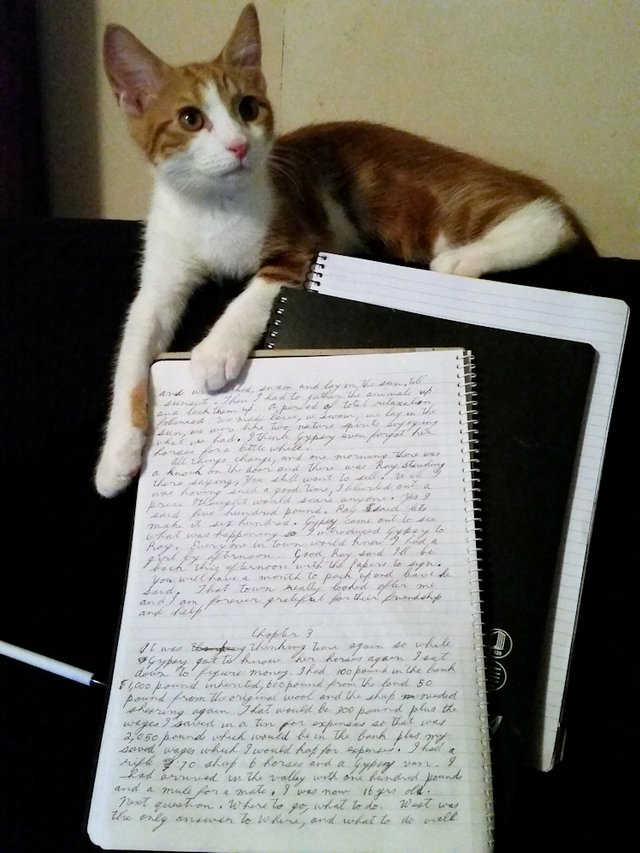 and swam and lay in the sun till
sunset. Then I had to gather the animals up
and lock them up. A period of total relaxation
followed. We made love, we swam, we lay in the
sun, we were like two nature spirits enjoying
what we had. I think Gypsy even forgot her
horses for a little while.
All things change, and one morning there was
a knock on the door and there was Ray standing
there saying, You still want to sell. Well I
was having such a good time, I blurted out a
price I thought would scare anyone. Yes I
said five hundred pound. Ray said lets
make it six hundred. Gypsy came out to see
what was happening so I introduced Gypsy to
Ray. Every one in town would know I had a
girl by afternoon. Good Ray said I'll be
back this afternoon with the papers to sign.
You will have a month to pack up and leave he
said. That town really looked after me
and I am forever grateful for their friendship
and help
Chapter 3
It was thinking time again so while
Gypsy got to know her horses again I sat
down to figure money. I had 100 pound in the bank
$1,000 pound inherited, 600 pound from the land 50
pound from the original wool and the sheep needed
shearing again. That would be 300 pound plus the
wages I saved in a tin for expenses so that was
2,050 pounds which would be in the bank plus my
saved wages which I would hap for expenses. I had a
rifle 70 sheep 6 horses and a Gypsy van. I
had arrived in the valley with one hundred pounds
and a mule for a mate. I was now 16 yrs old.
Next question. Where to go, what to do. West was
the only answer to Where, and what to do well